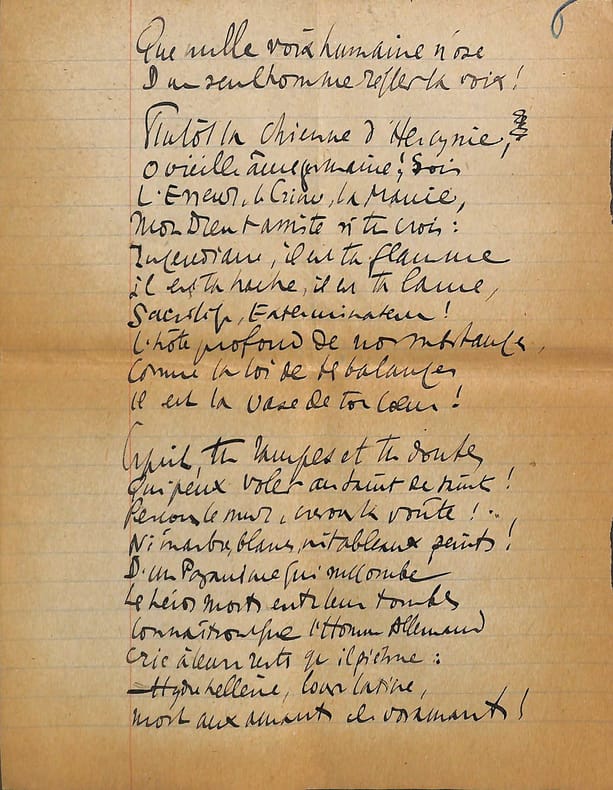 6
Que nulle voix humaine n'ose
D'un seul homme régler la voix!
Plutôt la chienne d'Hercynie,
O vieille âme germaine! Sois
L'Erreur, le Crime, la Manie,
Mon Dieu t'assiste si tu crois:
Incendiaire, il est ta flamme
il est ta hache, il est ta lame,
Sacrilège, Exterminateur!
L'hôte profond de nos substances,
Comme la loi de tes balances
il est la vase de ton cœur!
Esprit, tu rampes et tu doutes
Qui peux voler au saint de saint!
Perçons le mur, crevons la voûte!
Ni marbres blancs, ni tableaux peints!
D'un Paganisme qui succombe
Les héros morts entr'leur tombes
Connaîtront que l'Homme Allemand
Crie à leurs restes qu'il piétine:
Hydre hellène, louve latine,
mort aux amants de vos amants!